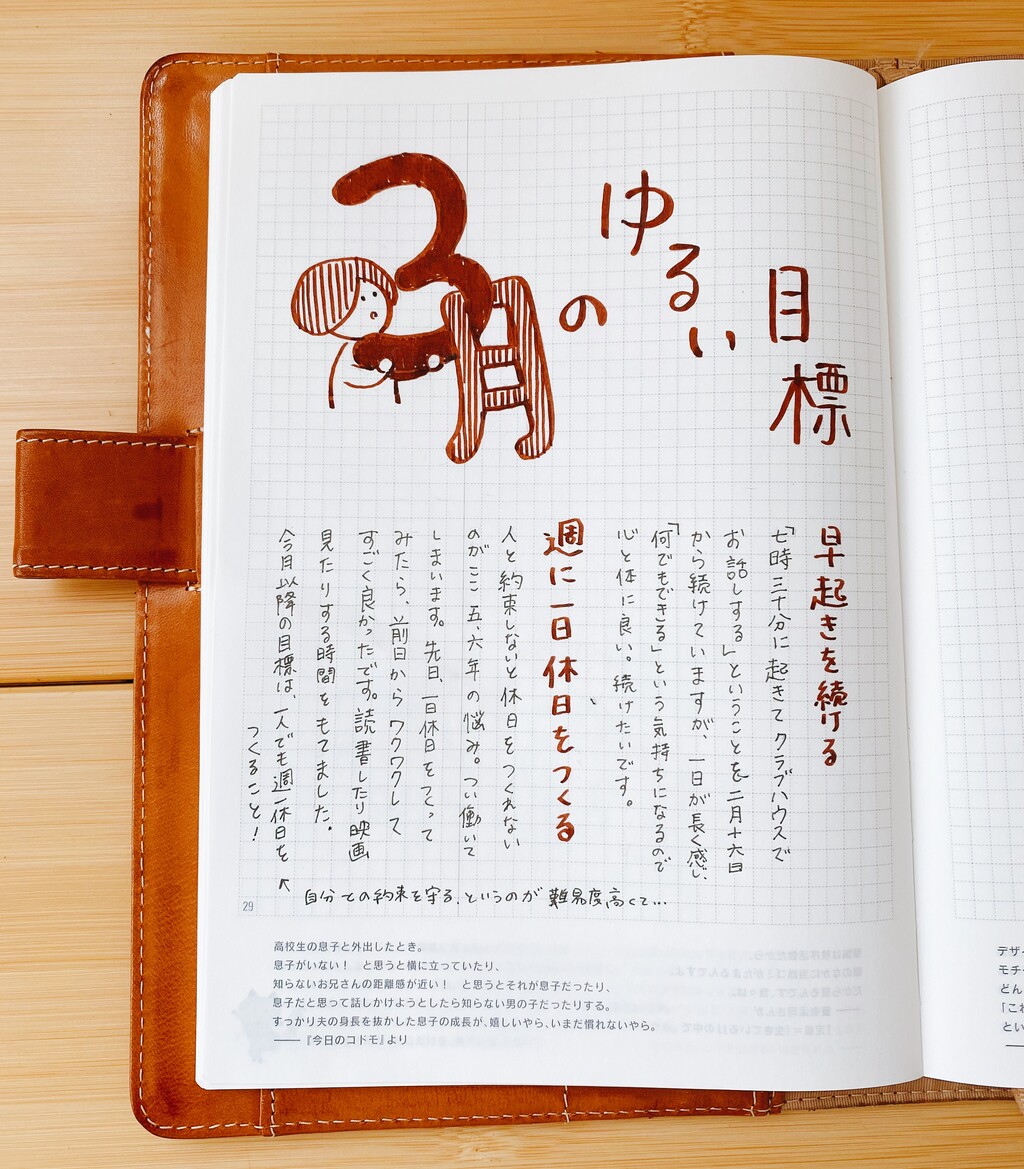 3月の
ゆるい
目標
早起きを続ける
「七時三十分に起きてクラブハウスで
お話しする」ということを二月十六日
から続けていますが、一日が長く感じ、
「何でもできる」という気持ちになるので
心と体に良い。続けたいです。
週に一日休日をつくる
人と約束しないと休日をつくれない
のがここ五、六年の悩み。つい働いて
しまいます。先日、一日休日をつくって
みたら、前日からワクワクして
すごく良かったです。読書したり映画
見たりする時間をもてました。
今月以降の目標は、一人でも週一休日を
つくること!
↖自分との約束を守る、というのが難易度高くて…
29
高校生の息子と外出したとき。
息子がいない! と思うと横に立っていたり、
知らないお兄さんの距離感が近い! と思うとそれが息子だったり、
息子だと思って話しかけようとしたら知らない男の子だったりする。
すっかり夫の身長を抜かした息子の成長が、嬉しいやら、いまだ慣れないやら。
――『今日のコドモ』より
デザイ
モチー
どん
「これ
とい